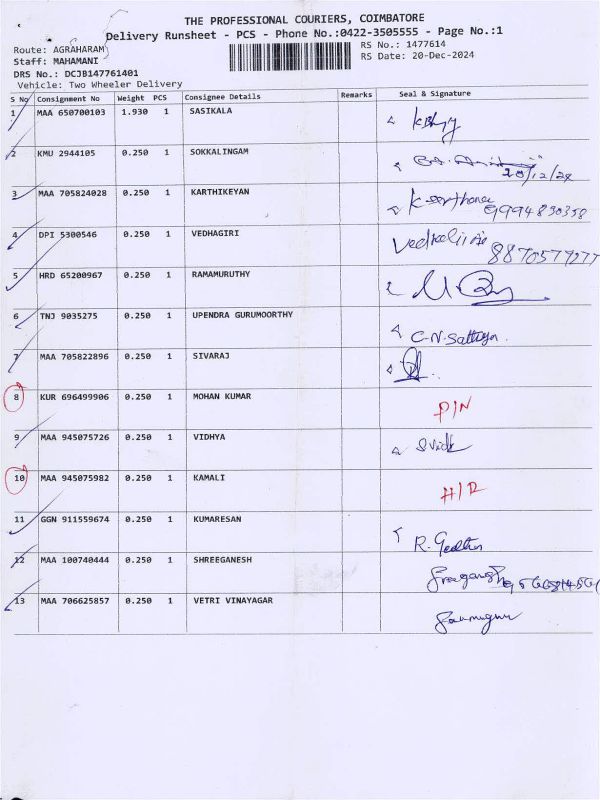 THE PROFESSIONAL COURIERS, COIMBATORE
Delivery Runsheet - PCS - Phone No.:0422-3505555 - Page No.:1
Route: AGRAHARAM
RS No.: 1477614
Staff: MAHAMANI
RS Date: 20-Dec-2024
DRS No.: DCJB147761401
Vehicle: Two Wheeler Delivery
S No Consignment No Weight PCS Consignee Details Remarks Seal & Signature
1 MAA 650700103 1.930 1 SASIKALA
2 KMU 2944105 0.250 1 SOKKALINGAM
20/12/24
3 MAA 705824028 0.250 1 KARTHIKEYAN
9994830358
4 DPI 5300546 0.250 1 VEDHAGIRI
8870577277
5 HRD 65200967 0.250 1 RAMAMURUTHY
6 TNJ 9035275 0.250 1 UPENDRA GURUMOORTHY
C-N. Sathya.
7 MAA 705822896 0.250 1 SIVARAJ
8 KUR 696499906 0.250 1 MOHAN KUMAR
P/N
9 MAA 945075726 0.250 1 VIDHYA
10 MAA 945075982 0.250 1 KAMALI
H/R
11 GGN 911559674 0.250 1 KUMARESAN
12 MAA 100740444 0.250 1 SHREEGANESH
13 MAA 706625857 0.250 1 VETRI VINAYAGAR